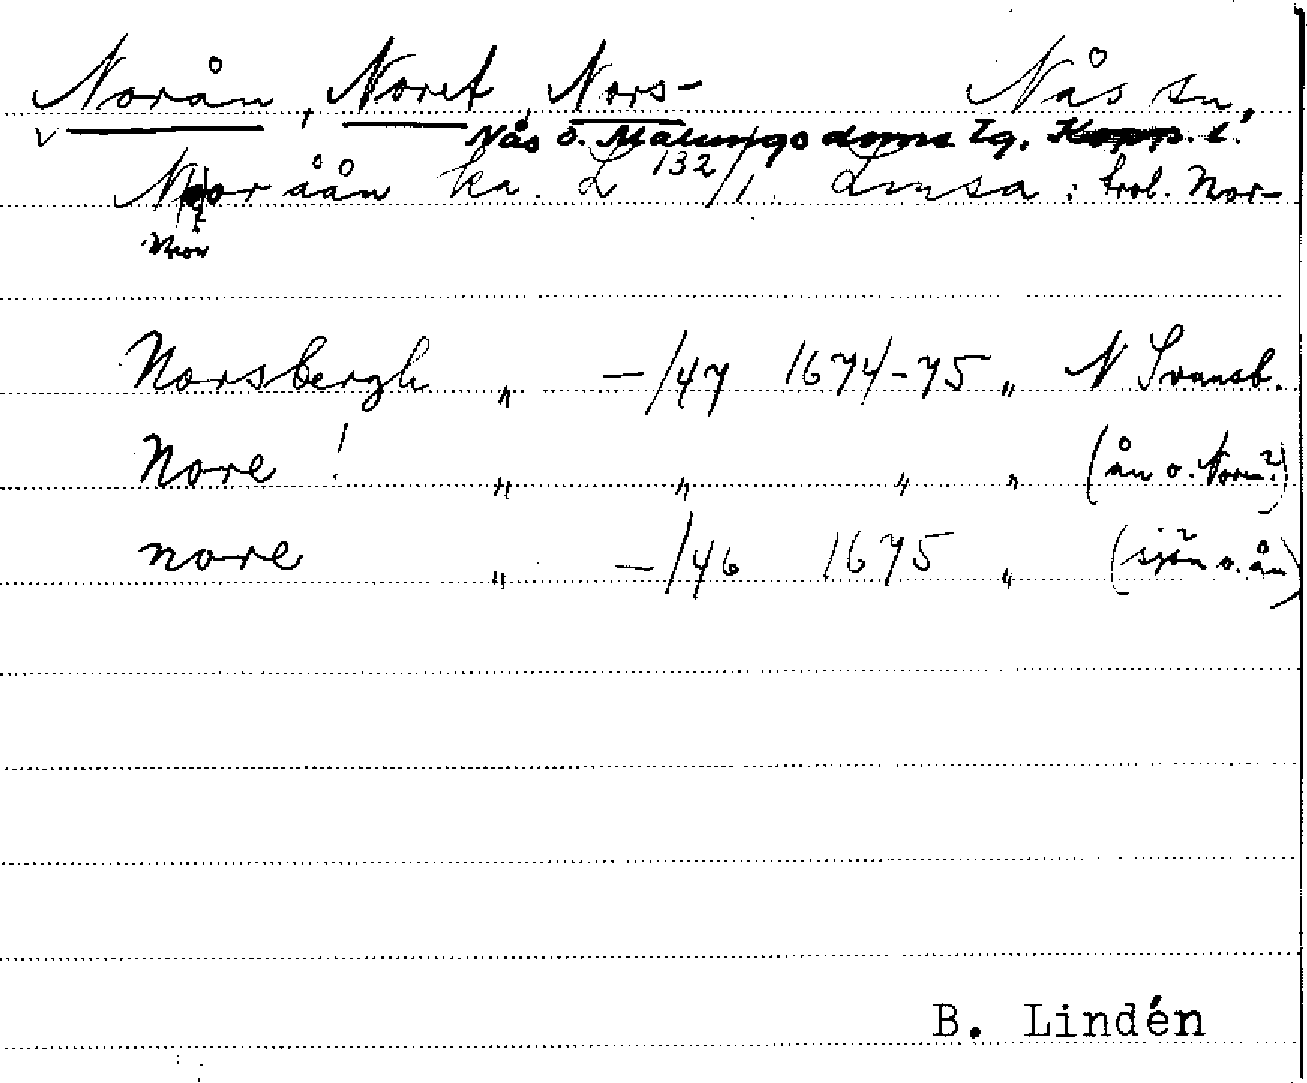 Norån, Noret, Nors- Nås sn,
Nås o. Malungs doms Tg. Kopp. l.
Nor åån ka. L 132/1. Limsa: trol. Nor-
Nor
Norsbergh " -/47 1674-75 " N Svansb.
Nore! " " " " (ån o. Noren?)
nore " -/46 1675 " (sjön o. ån)
B. Lindén